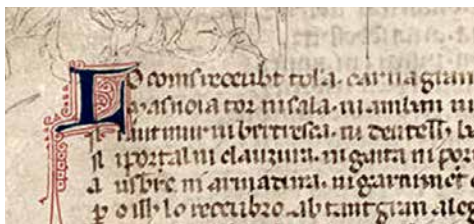 Lo coms receubt tola. car na gran
M as noia tor ni sala. ni amban ni
n i aut mur ni bertresca. ni dentelh
n i portal ni clauzura. ni gaita ni por
a usberc ni armadura. ni garniment
p o ilh lo receubro. ab tant gran aleg